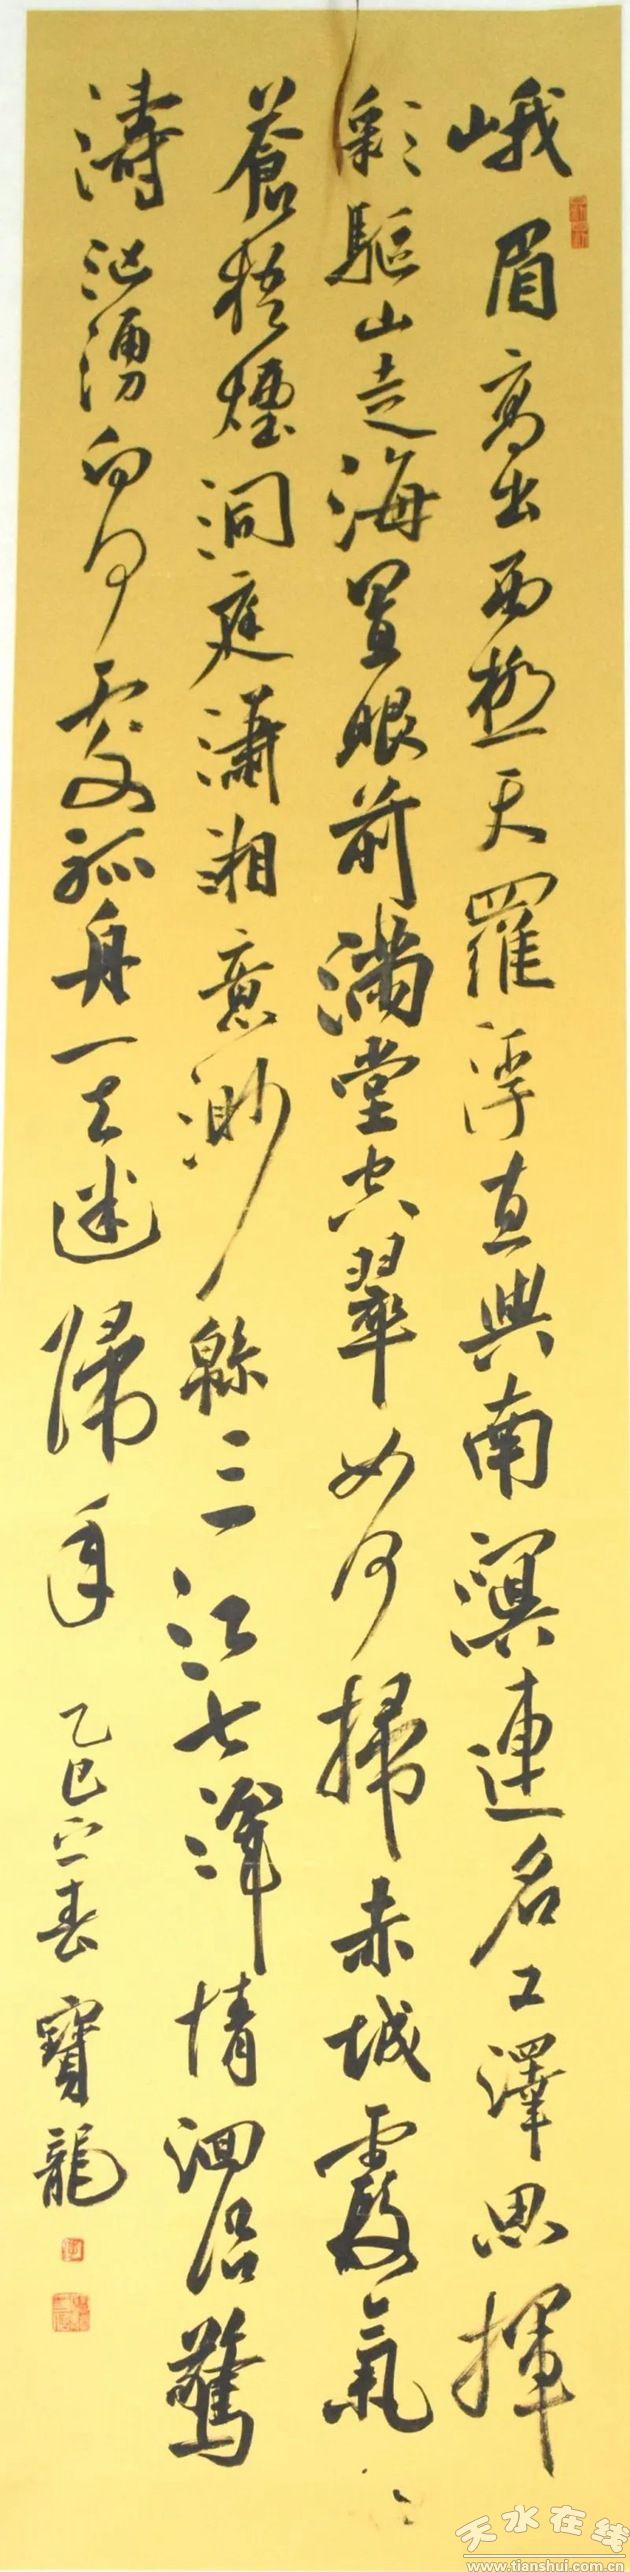 峨眉高出西極天羅浮直與南溟連名工澤思揮
彩驅山走海置眼前滿堂空翠如可掃赤城霞氣
蒼梧煙洞庭瀟湘意渺緜三江七澤情洄沿驚
濤洶湧向何處孤舟一去迷歸年
乙巳之春寶龍
天水在线
www.tianshui.com.cn